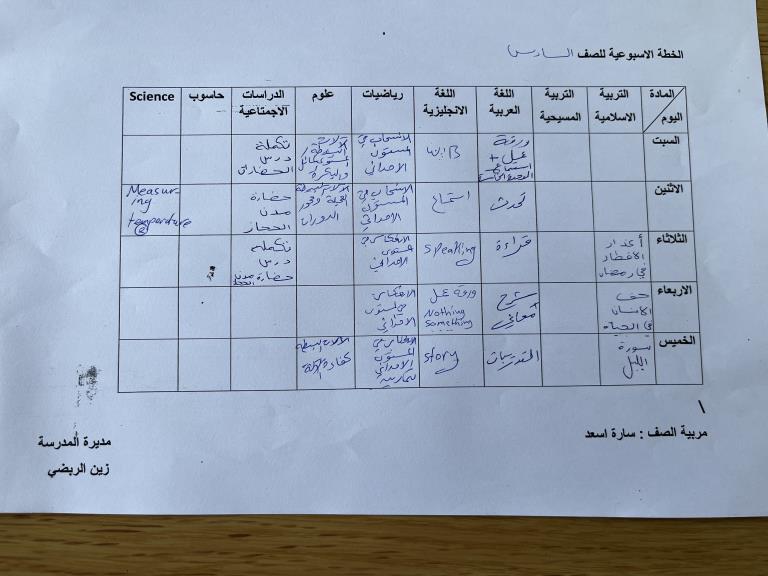 الخطة الاسبوعية للصف السادس
المادة
اليوم
التربية
الاسلامية
التربية
المسيحية
اللغة
العربية
اللغة
الانجليزية
رياضيات
علوم
الدراسات
الاجتماعية
حاسوب
Science
السبت
ورقة
عمل +
استماع
الانسحاب في
المستوى
الاحداثي
تكملة
درس
الحضارات
الاثنين
تحدث
استماع
الانسحاب في
المستوى
الاحداثي
الالات البسيطة
العجلة ومحور
الدوران
حضارة
مدن
الحجاز
Measur-
ing
temperature
الثلاثاء
أعذار
الافطار
في رمضان
قراءة
speaking
الانعكاس في
مستوى
الاحداثي
تكملة
درس
حضارة مدن
الحجاز
الاربعاء
حق
الانسان
في الحياة
شرح
معاني
ورقة عمل
Nothing
Something
الانعكاس
في مستوى
الاحداثي
الخميس
سورة
الليل
التدريبات
story
الانعكاس في
المستوى
الاحداثي
الالات البسيطة
كفاءة الالة
١
مربية الصف : سارة اسعد
مديرة المدرسة
زين الربضي